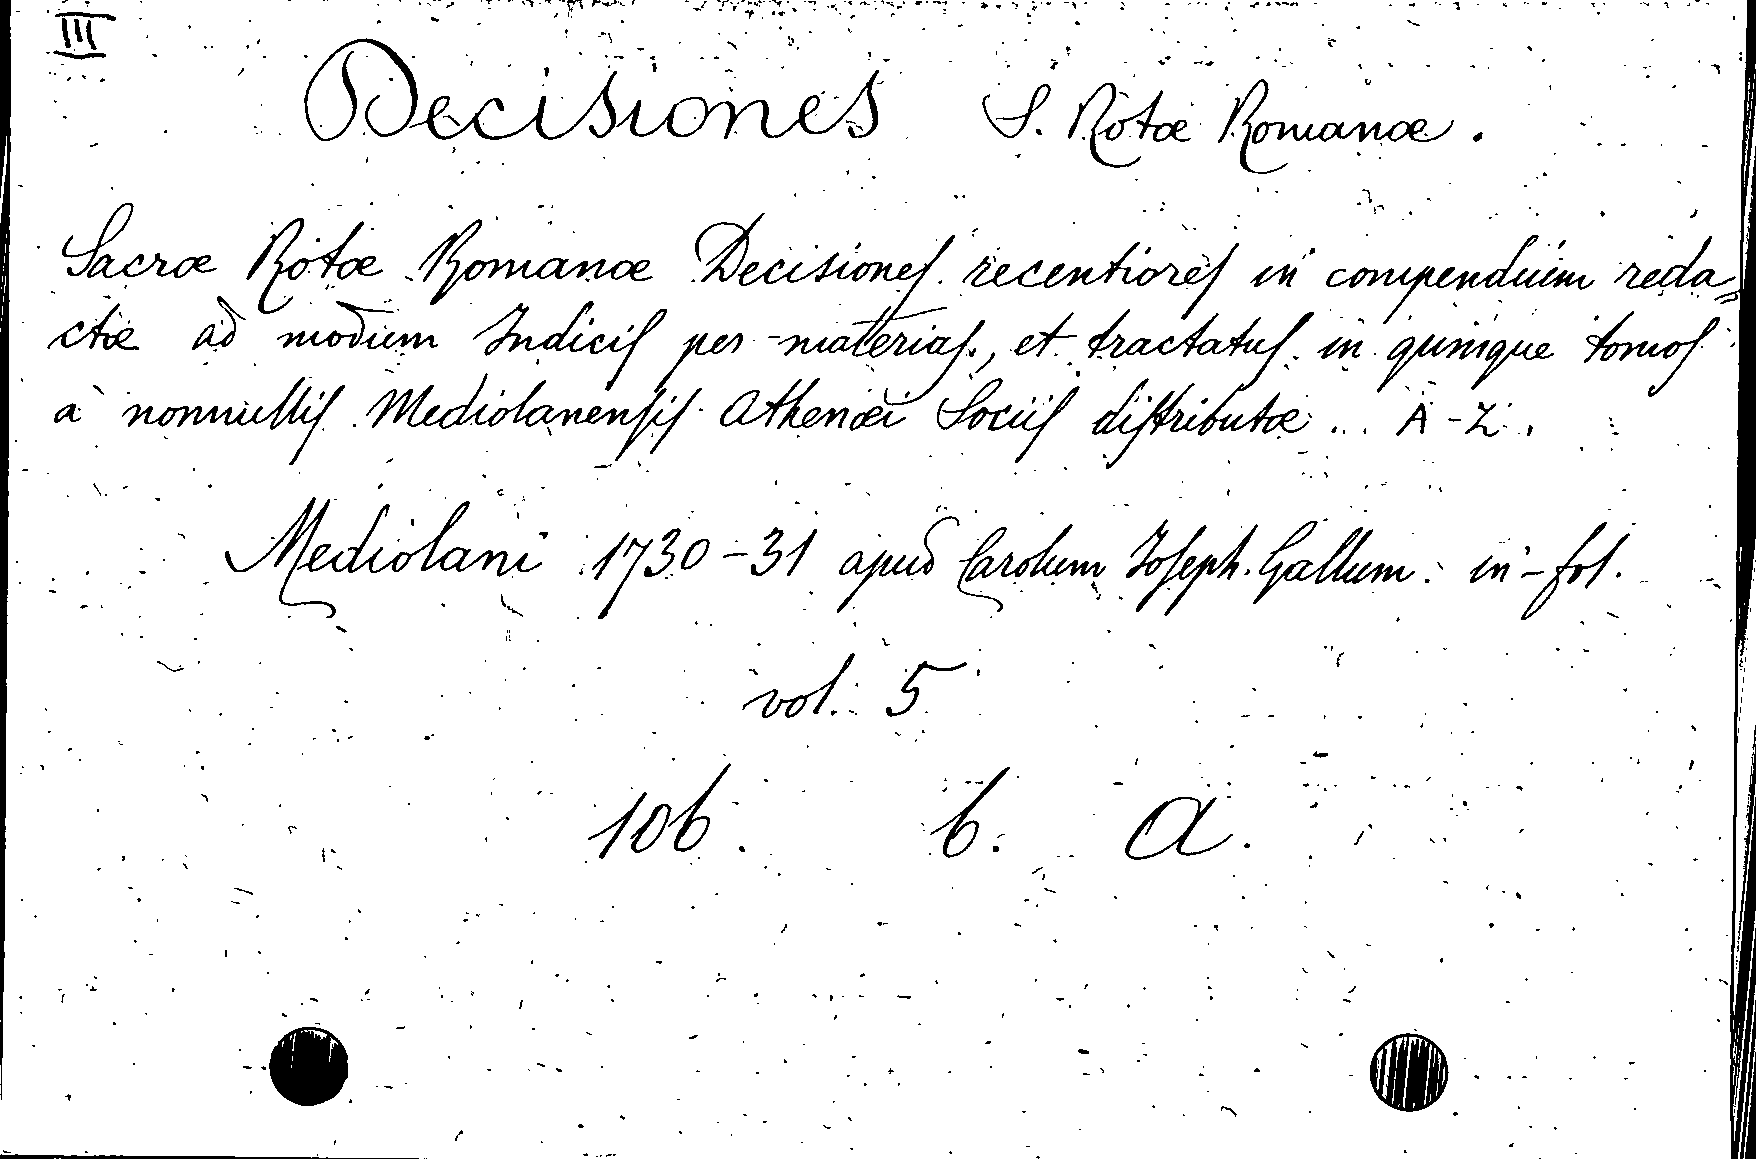 III
Decisiones S. Rotæ Romanæ.
Sacræ Rotæ Romanæ Decisiones recentiores in compendium reda=
ctæ ad modum Indicis per materias, et tractatus in quinque tomos
a nonnullis Mediolanensis Athenæi Sociis distributæ ... A-Z.
Mediolani 1730-31 apud Carolum Joseph. Gallum. in-fol.
vol. 5
106. b. A.